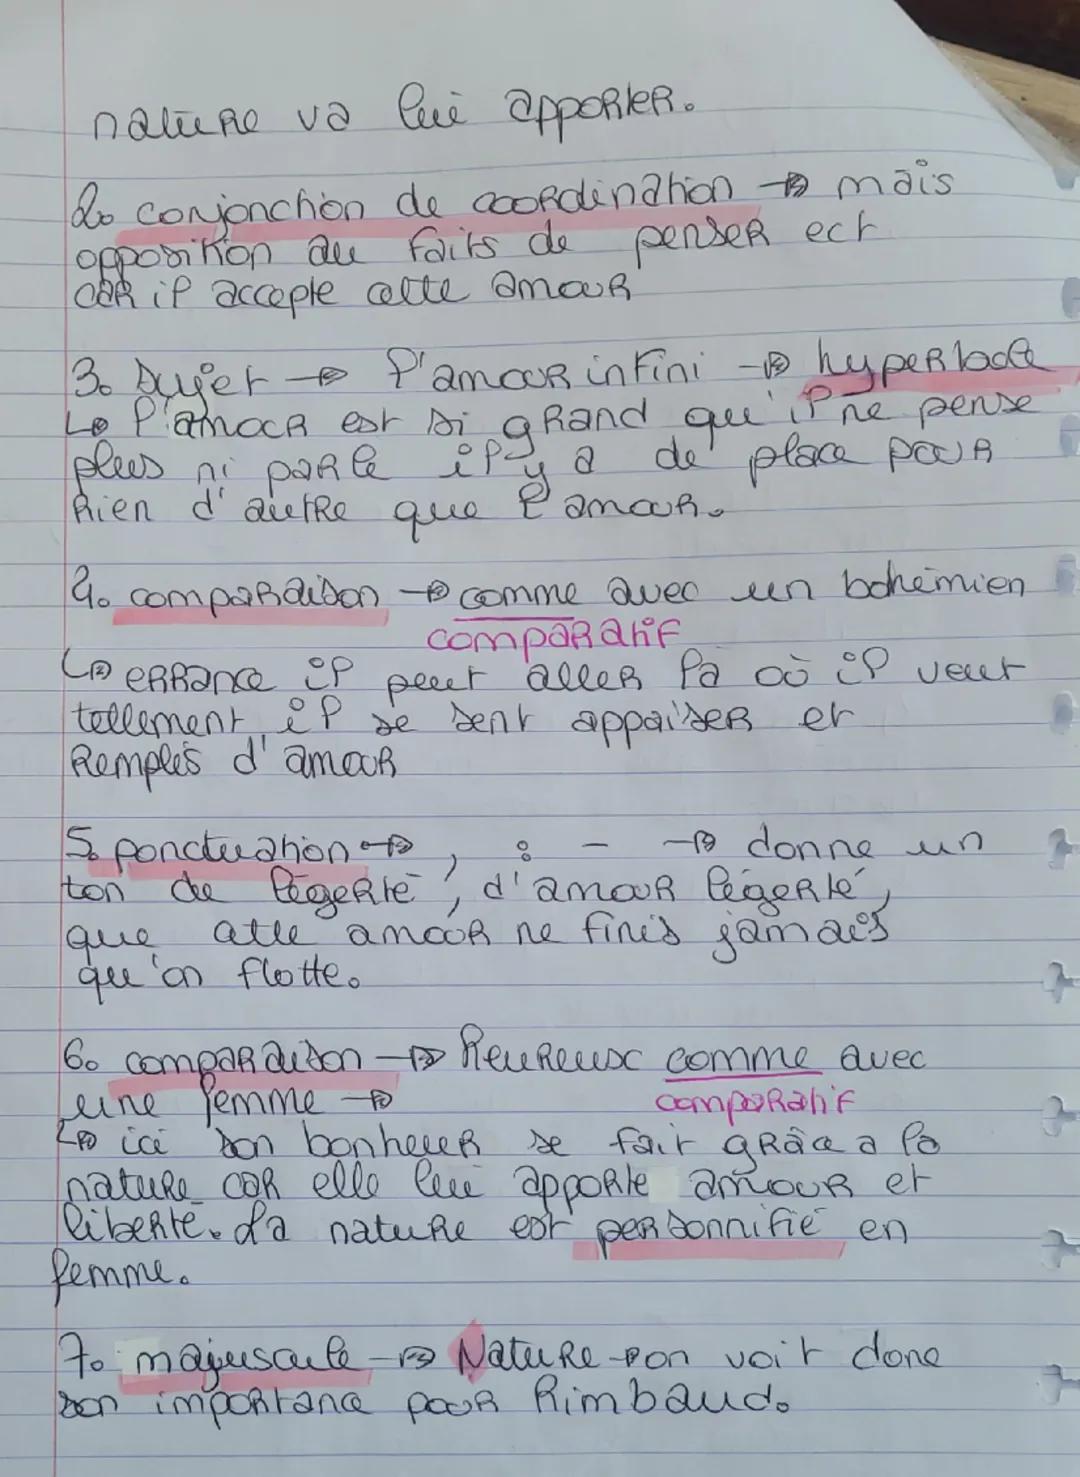 nature va lui apporter.
2. conjonction de coordination → mais
opposition au faits de penser ect
car il accepte cette amour
3. Sujet → l'amour infini → hyperbole
↳ l'amour est si grand qu'il ne pense
plus ni parle il y a de place pour
rien d'autre que l'amour.
4. comparaison → comme avec un bohémien
comparatif
↳ errance il peut aller là où il veut
tellement il se sent appaiser et
remplis d'amour
5. ponctuation → , : - → donne un
ton de légerté, d'amour légerté,
que cette amour ne finis jamais
qu'on flotte.
6. comparaison → Heureux comme avec
une femme →
comparatif
↳ ici son bonheur se fait grâce a la
nature car elle lui apporte amour et
liberté. La nature est personnifié en
femme.
7. majuscule → Nature → on voit donc
son importance pour Rimbaud.